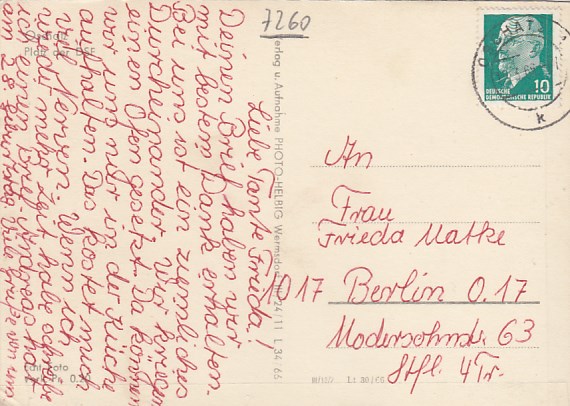 7260
Oschatz
Platz der DSF
Liebe Tante Frieda!
Deinen Brief haben wir
mit bestem Dank erhalten.
Bei uns ist ein ziemliches
Durcheinander, wir kriegen
einen Ofen gesetzt. Da können
wir uns nur in der Küche
aufhalten. Das kostet mich
viel Nerven. Wenn ich
wieder mehr Zeit habe schreibe
ich einen Brief.
am 28. Geburtstag. Viele Grüße von
Echt Foto
0.20
Verlag u. Aufnahme PHOTO-HELBIG Wermsdorf 24/11 L 34/65
III/18/7 Lt 30/66
OSCHATZ
k
10
DEUTSCHE
DEMOKRATISCHE REPUBLIK
An
Frau
Frieda Matke
017 Berlin O.17
Modersohnstr. 63
Stfl. 4Tr.